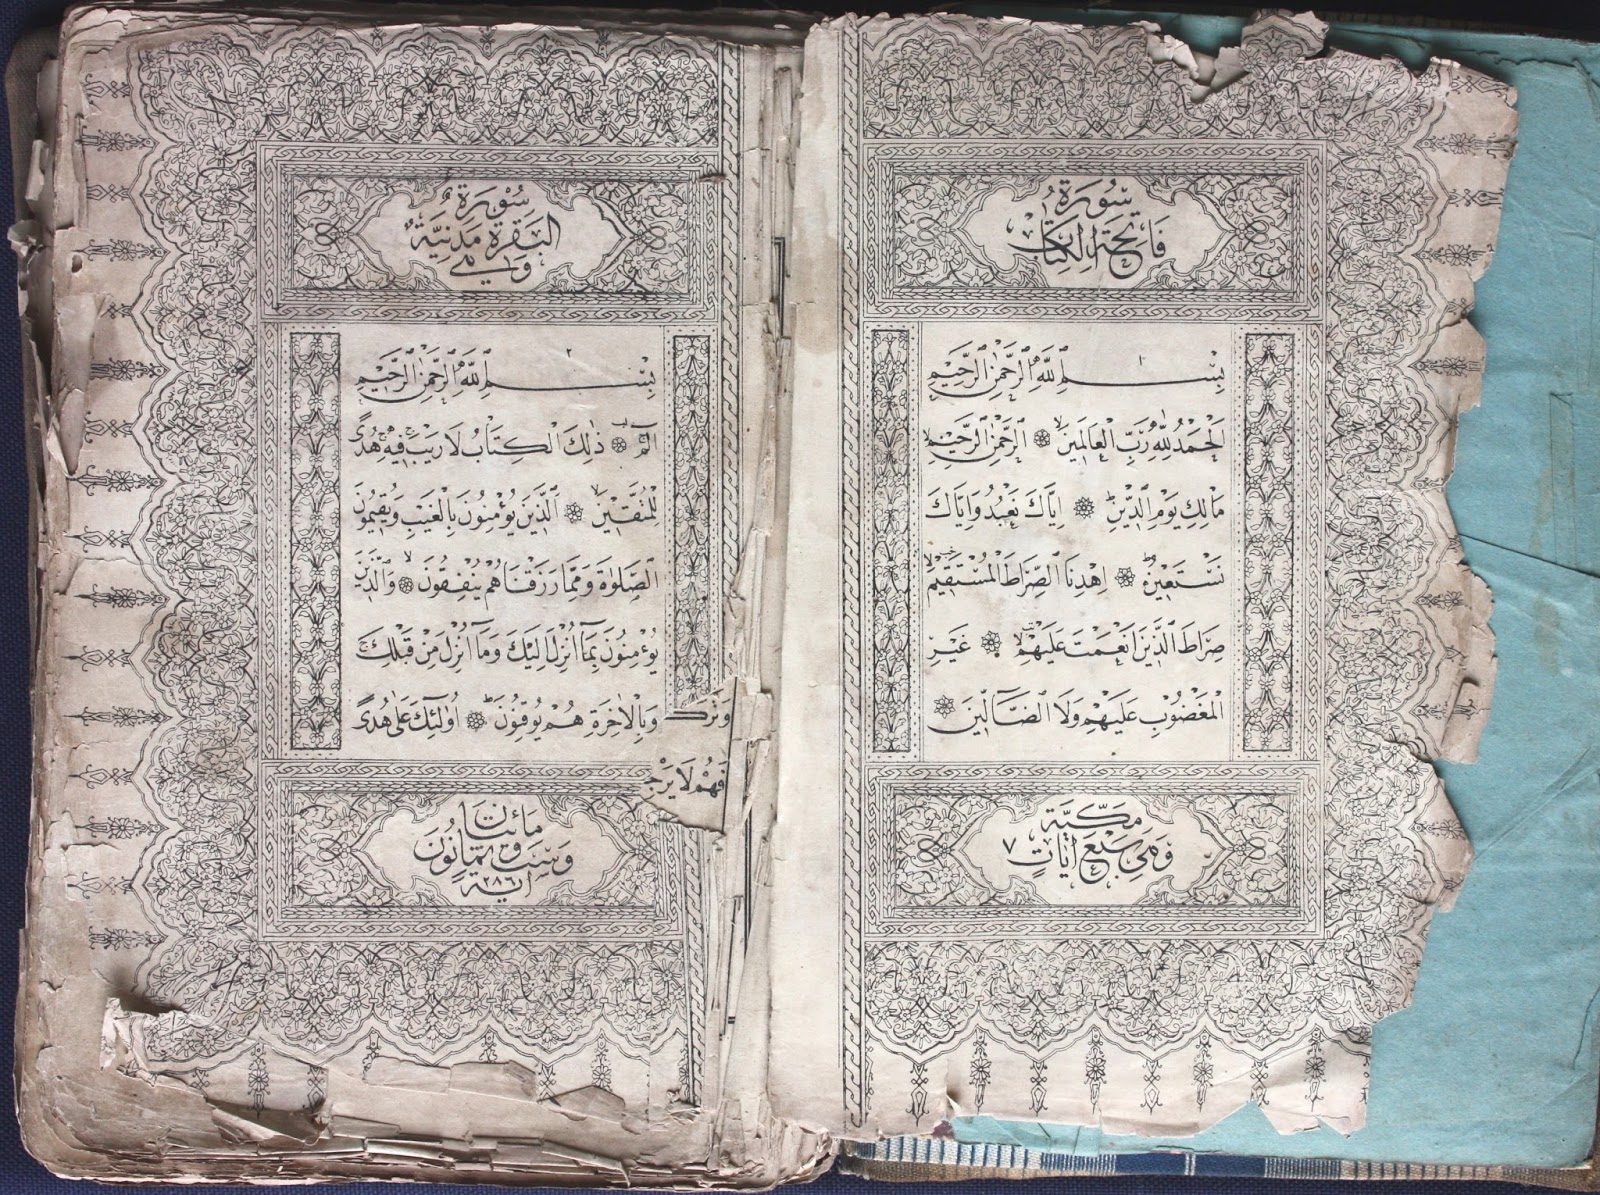 سُورَةُ
فَاتِحَةِ الْكِتَابِ
١
بِسْمِ ٱللّٰهِ ٱلرَّحْمٰنِ ٱلرَّحِيمِ
اَلْحَمْدُ لِلّٰهِ رَبِّ الْعَالَمِينَۙ ۞ اَلرَّحْمٰنِ ٱلرَّحِيمِۙ
مَالِكِ يَوْمِ ٱلدِّينِۜ ۞ اِيَّاكَ نَعْبُدُ وَاِيَّاكَ
نَسْتَعِينُۜ ۞ اِهْدِنَا ٱلصِّرَاطَ الْمُسْتَقِيمَۙ
صِرَاطَ ٱلَّذِينَ اَنْعَمْتَ عَلَيْهِمْۙ ۞ غَيْرِ
الْمَغْضُوبِ عَلَيْهِمْ وَلَا ٱلضَّٓالِّينَ ۞
مَكِّيَّةٌ
وَهِىَ سَبْعُ اٰيَاتٍ ٧
سُورَةُ
الْبَقَرَةِ مَدَنِيَّةٌ
وَهِىَ
٢
بِسْمِ ٱللّٰهِ ٱلرَّحْمٰنِ ٱلرَّحِيمِ
الٓمٓ ۞ ذٰلِكَ الْكِتَابُ لَا رَيْبَۚ فِيهِۚ هُدًى
لِلْمُتَّقِينَۙ ۞ اَلَّذِينَ يُؤْمِنُونَ بِالْغَيْبِ وَيُقِيمُونَ
ٱلصَّلٰوةَ وَمِمَّا رَزَقْنَاهُمْ يُنْفِقُونَۙ ۞ وَٱلَّذِينَ
يُؤْمِنُونَ بِمَٓا اُنْزِلَ اِلَيْكَ وَمَٓا اُنْزِلَ مِنْ قَبْلِكَۚ
وَبِالْاٰخِرَةِ هُمْ يُوقِنُونَۜ ۞ اُولٰٓئِكَ عَلٰى هُدًى
فَهُمْ لَا
مِائَتَانِ
وَسِتٌّ وَثَمَانُونَ
اٰيَةً ٢٨٦